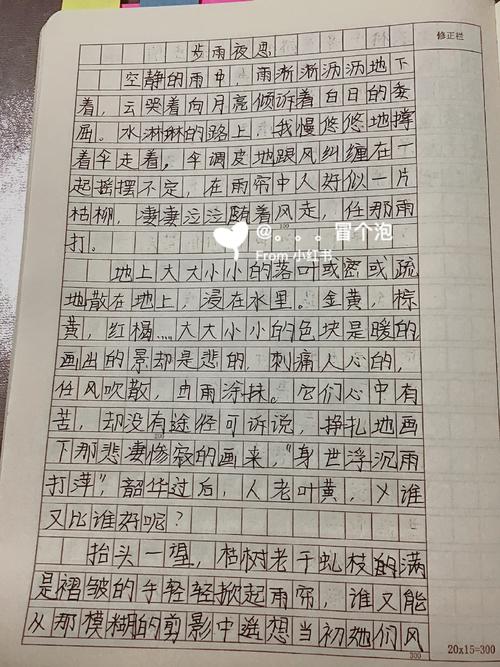 修正栏
步雨夜思
空静的雨中，雨淅淅沥沥地下
着，云哭着向月亮倾诉着白日的委
屈。水淋淋的路上，我慢悠悠地撑
着伞走着，伞调皮地跟风纠缠在一
起摇摆不定，在雨帘中人好似一片
枯柳，凄凄泣泣随着风走，任那雨
打。
100
@。。。冒个泡
From 小红书
地上大大小小的落叶或密或疏
地散在地上，浸在水里。金黄，棕
黄，红褐……大大小小的色块是暖的
画出的景却是悲的，刺痛人心的，
任风吹散，由雨涂抹。它们心中有
苦，却没有途径可诉说，挣扎地画
200
下那悲凄惨寂的画来，“身世浮沉雨
打萍”，韶华过后，人老叶黄，又谁
又比谁好呢？
抬头一望，枯树老干虬枝的满
是褶皱的手轻轻掀起雨帘，谁又能
从那模糊的剪影中遥想当初她们风
300
20x15=300